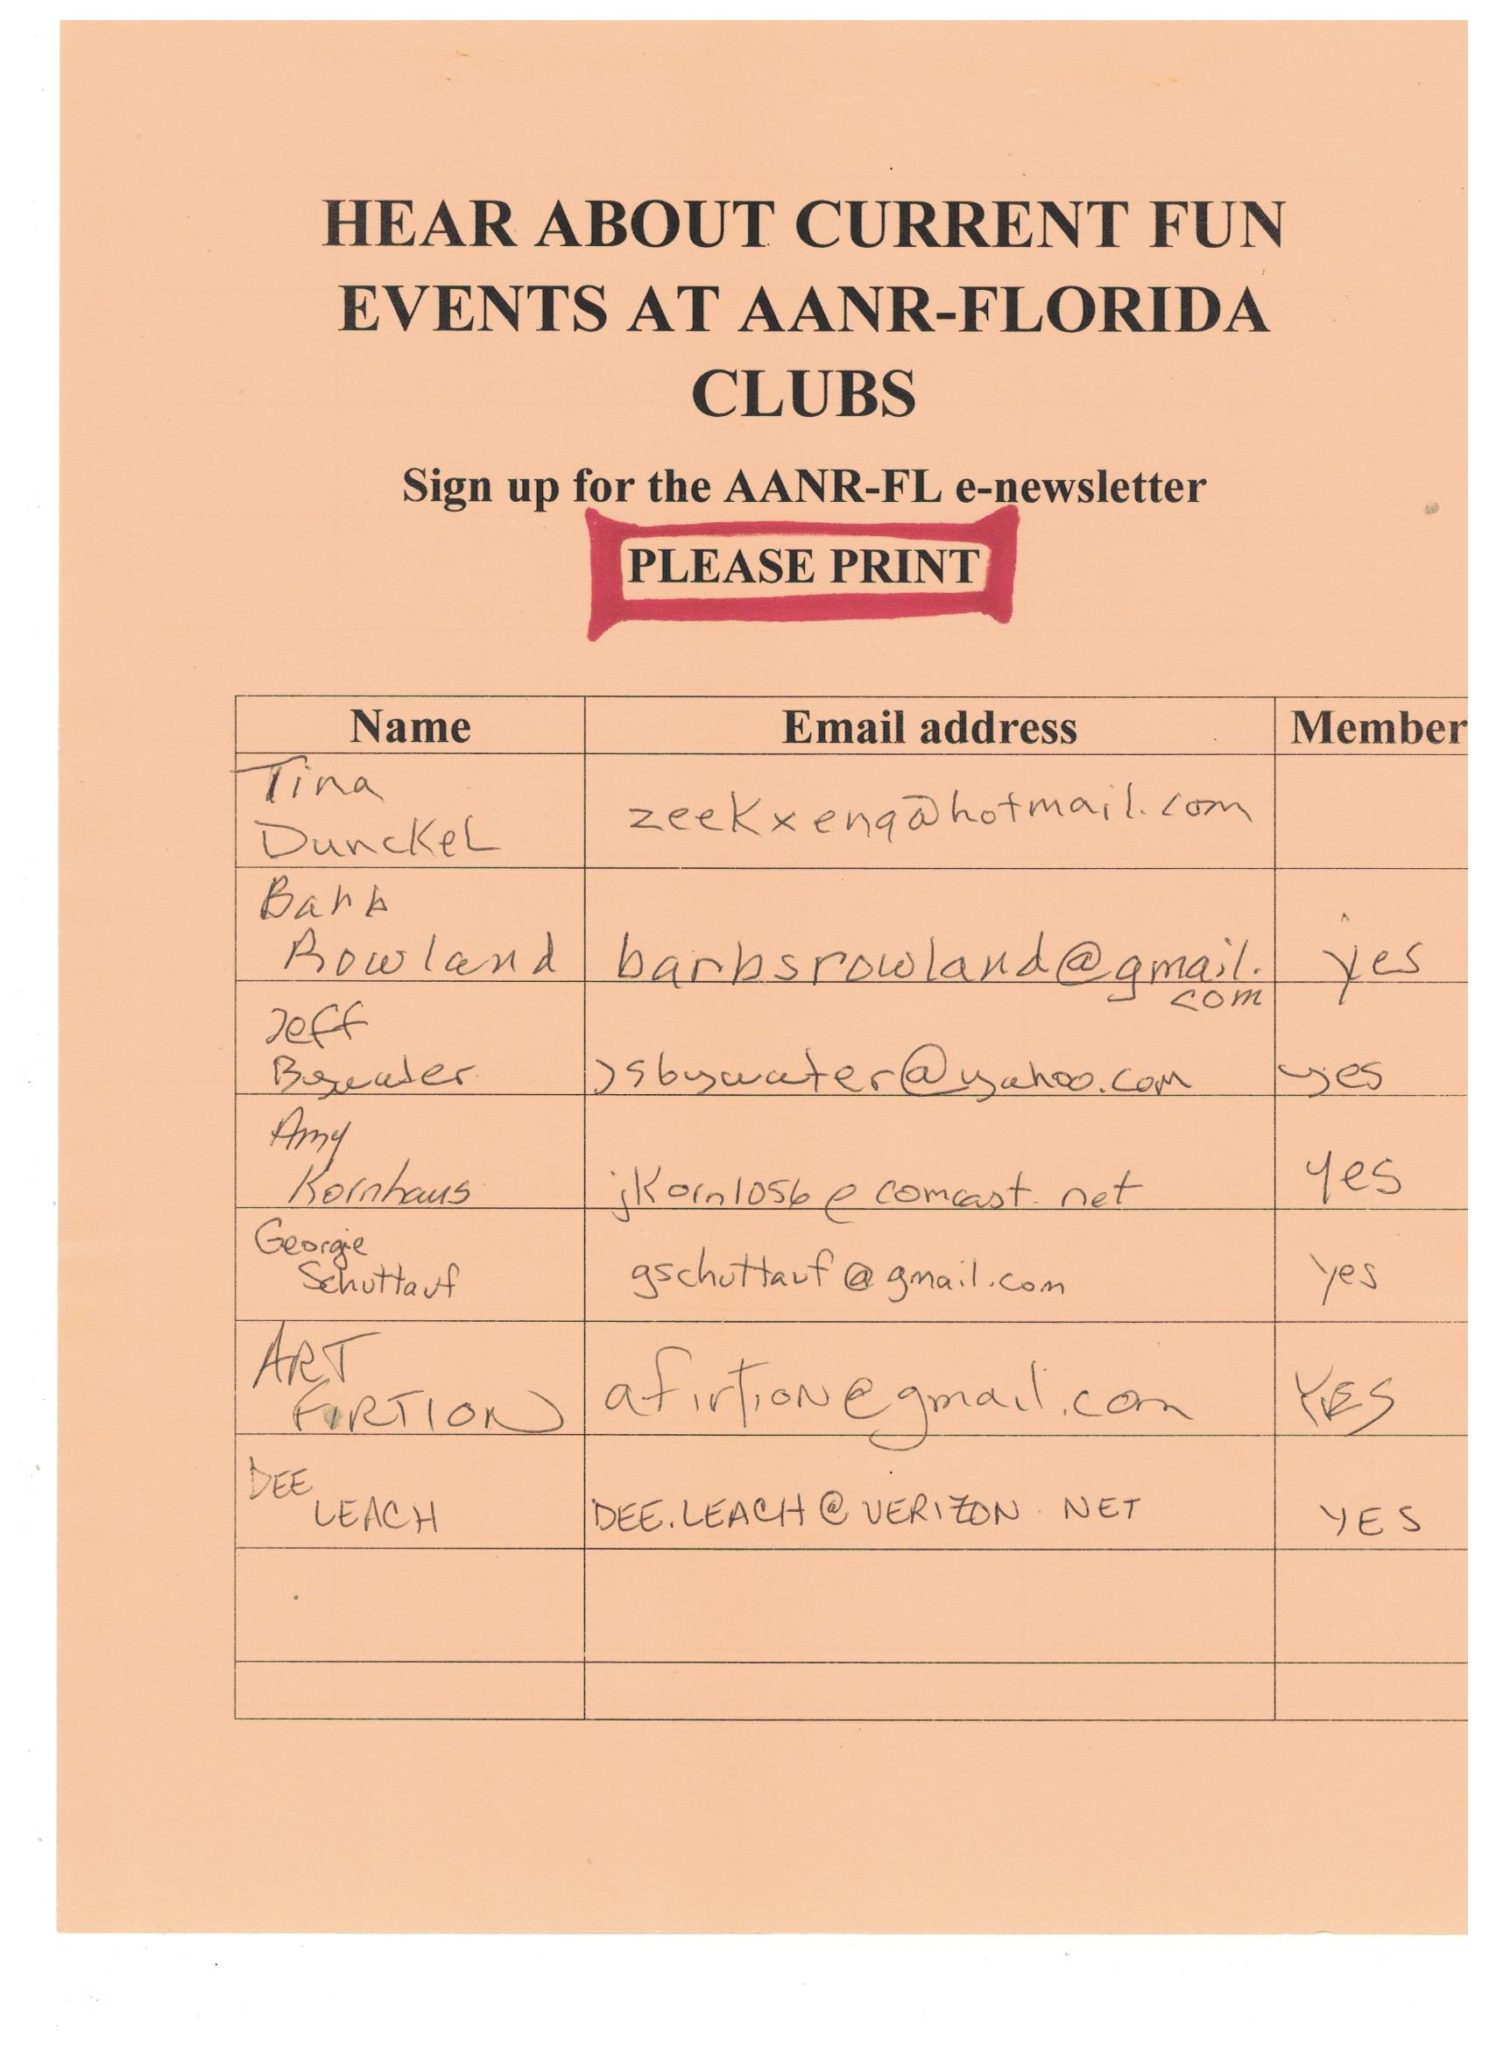 HEAR ABOUT CURRENT FUN
EVENTS AT AANR-FLORIDA
CLUBS
Sign up for the AANR-FL e-newsletter
PLEASE PRINT
Name Email address Member
Tina
Dunckel zeekxenq@hotmail.com
Barb
Rowland barbsrowland@gmail. yes
com
Jeff
Bywater jsbywater@yahoo.com yes
Amy
Kornhaus jkorn1056@comcast.net yes
Georgie
Schuttauf gschuttauf@gmail.com yes
ART
FIRTION afirtion@gmail.com YES
DEE
LEACH DEE.LEACH@VERIZON.NET YES